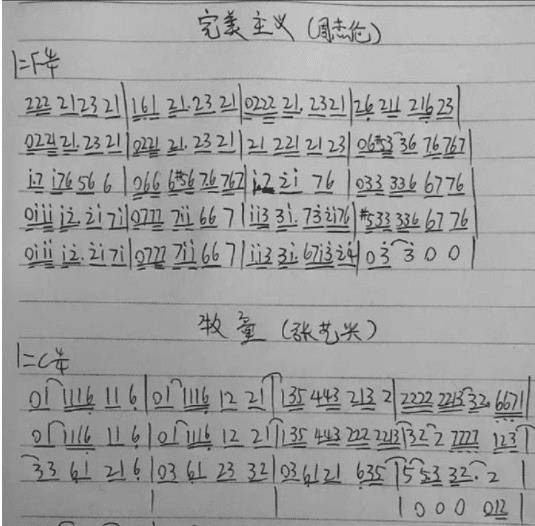 完美主义（周杰伦）
1=F 4/4
222 2123 21|161 21.23 21|0222 21.2321|26 211 21623|
0221 21.23 21|0221 21.23 21|21 221 21 23|06#53 36 76767|
i7 i76 56 6|066 6#56 76 767|i.2 2i 76|033 336 6776|
0iii i2.2i7i|0777 7ii 66 7|ii3 3i.732i76|#533 336 67 76|
0iii i2.2i7i|0777 7ii 66 7|ii3 3i.67i324|03 3 0 0|
（张艺兴）
1=C 4/4
01 1116 11 6|01 1116 12 21|135 443 213 2|2222 2213 32.6671|
01 1116 11 6|01 1116 12 21|135 443 222 2213|32 2 7777 123|
33 61 21 6|03 61 23 32|03 61 21 635|5 53 32. 2|
|0 0 0 012|